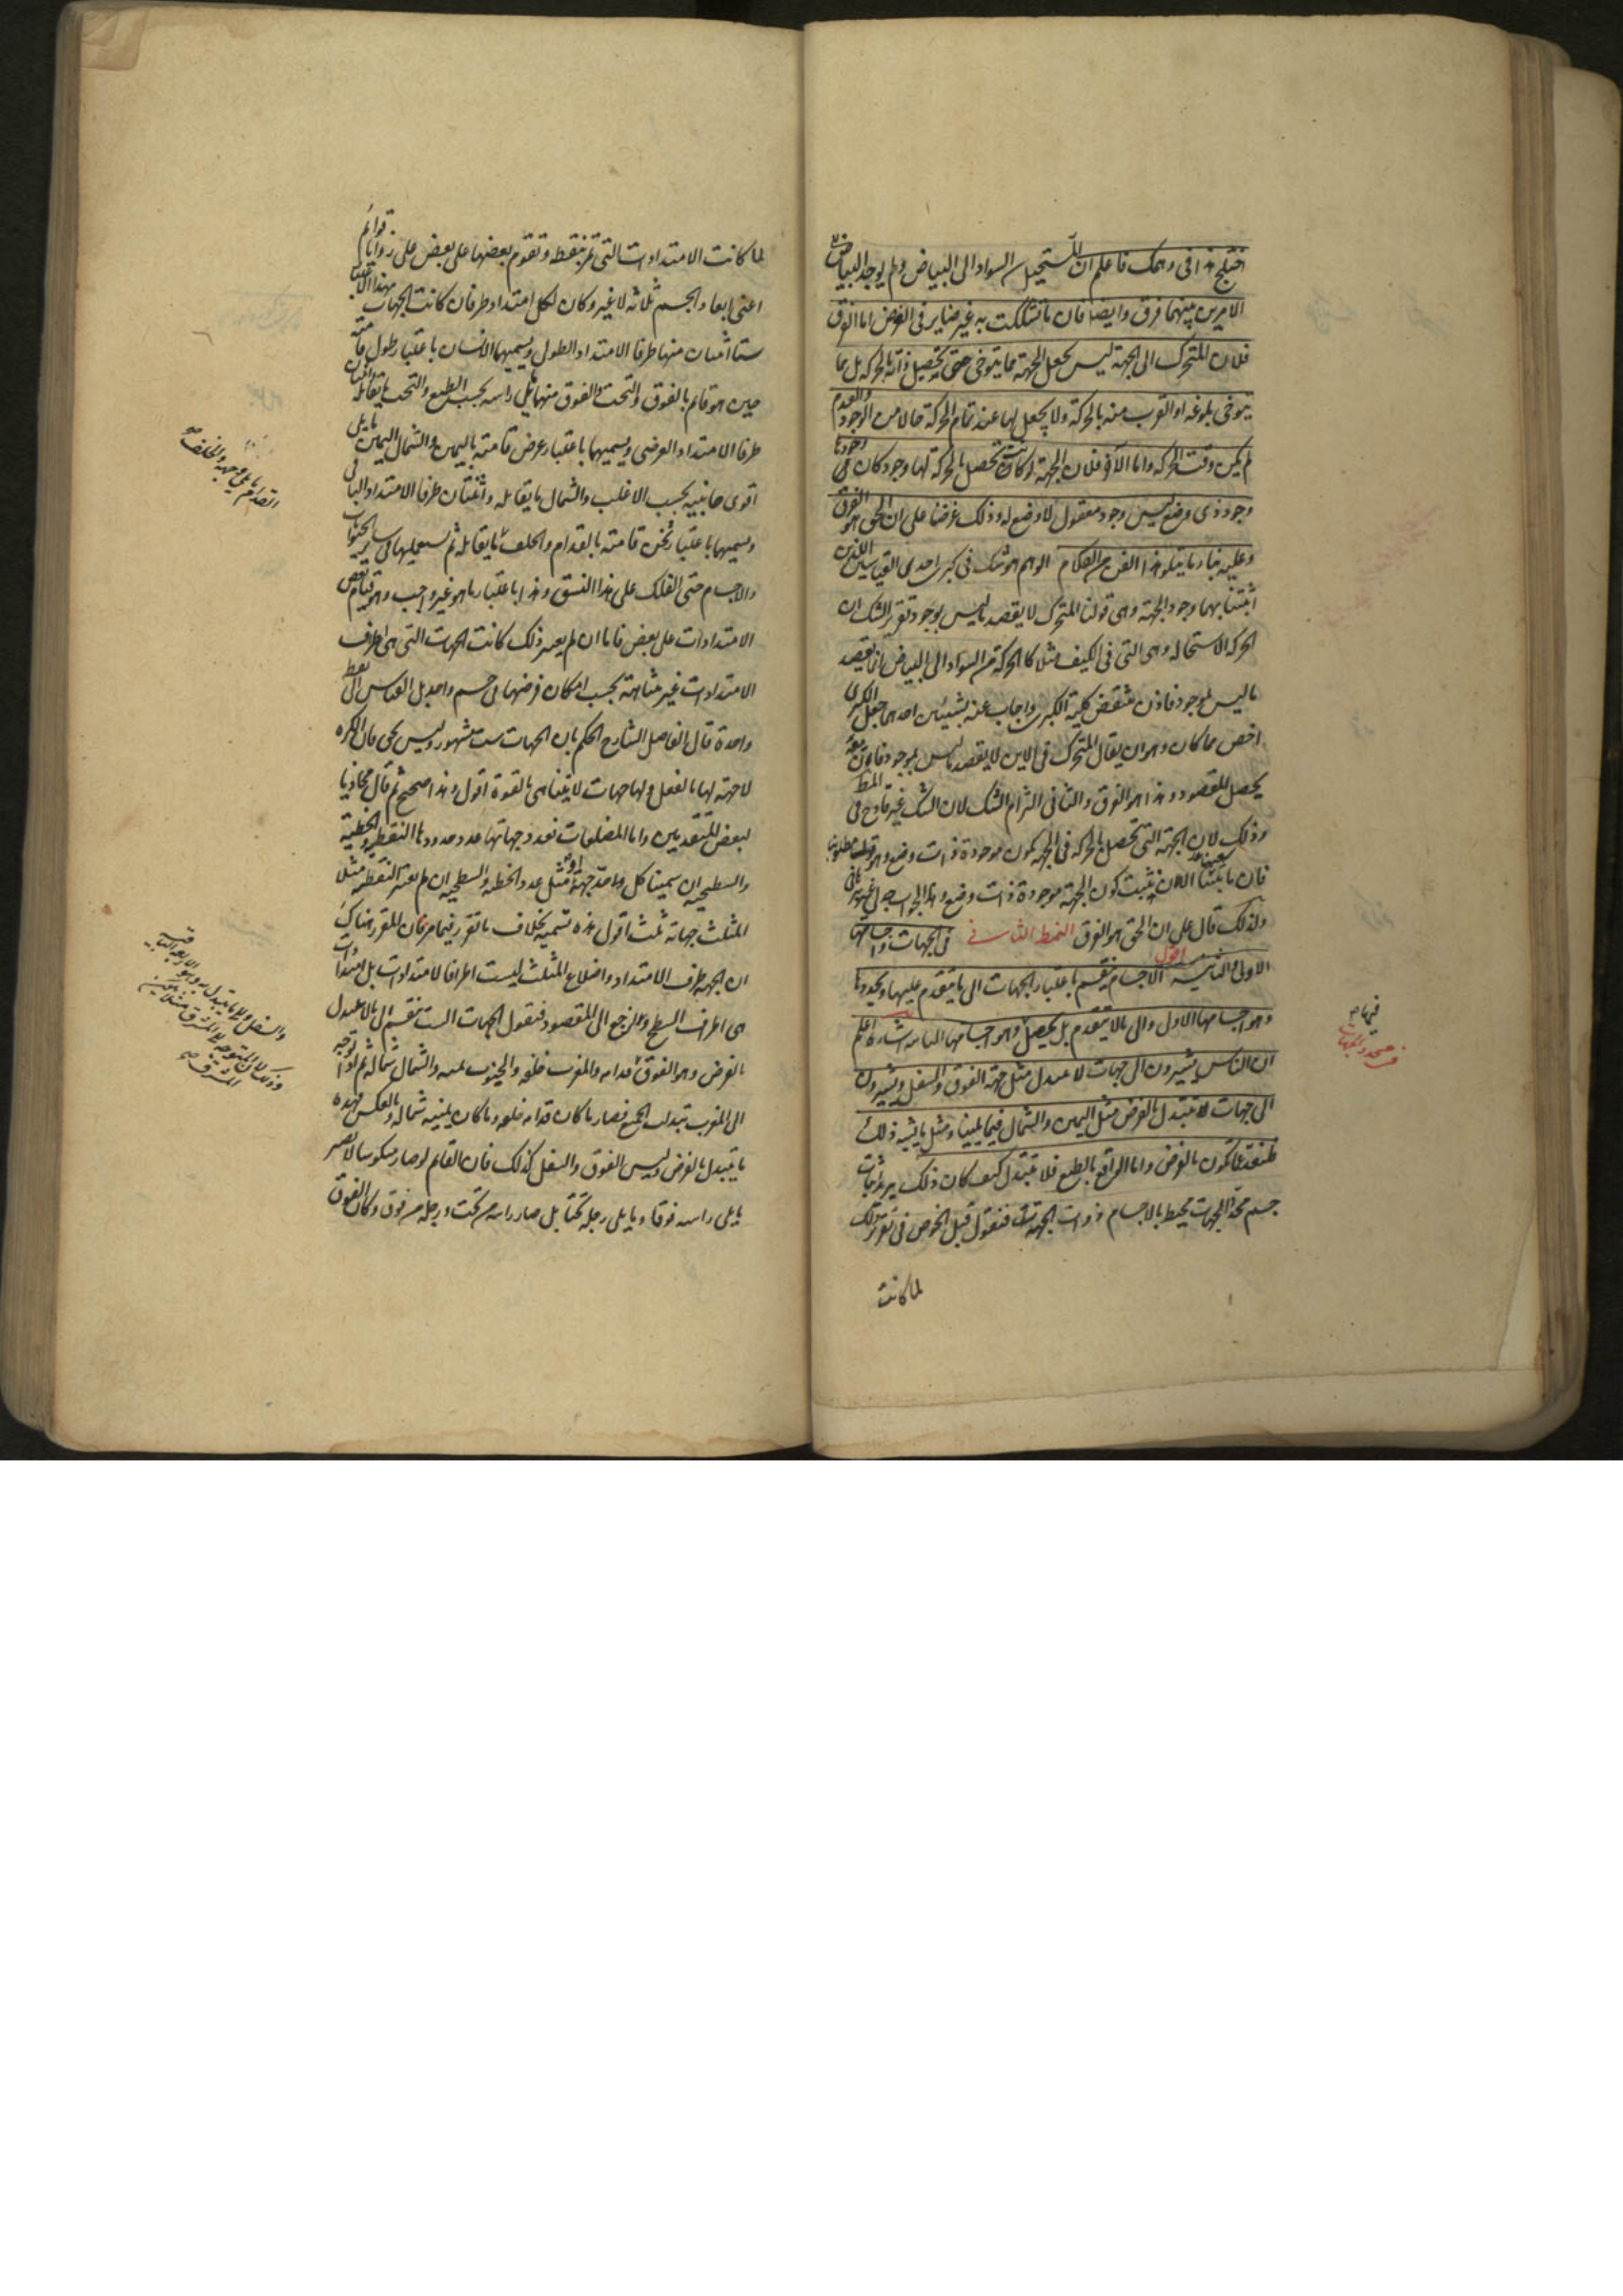 اختلج هذا فى وهمك فاعلم ان المستحيل من السواد الى البياض ولم يوجد البياض
الامرين بينهما فرق وايضا فان ما تشككت به غير ضاير فى الغرض اما الفرق
فلان المتحرك الى الجهة ليس يجعل الجهة مما يتوخى حتى تحصيل ذاته بالحركة بل مما
يتوخى بلوغه او القرب منه بالحركة ولا يجعل لها عند تمام الحركة حالا من الوجود والعدم
لم يكن وقت الحركه واما الاخر فلان الجهة لو كانت تحصل بالحركة لها وجود كان فى وجودها
وجود ذى وضع ليس وجود معقول لا وضع له وذلك غرضنا على ان الحق هو الفرق
وعليه بناء ما يتلو هذا الفن من الكلام الوهم هو شك فى كبرى احدى القياسين اللذين
اثبتنا بهما وجود الجهة وهى قولنا المتحرك لا يقصد ما ليس بموجود تقرير الشك ان
الحركة الاستحالة وهى التى فى الكيف مثلا كالحركة من السواد الى البياض انما يقصد
ما ليس بموجود فاذن تنتقض كلية الكبرى واجاب عنه بشيئين احدهما جعل الكبرى
اخص مما كان وهو ان يقال المتحرك فى الاين لا يقصد ما ليس بموجود فان
يحصل المقصود وهذا هو الفرق والثانى التزام الشك لان الشك غير قادح فى المط
وذلك لان الجهة التى تحصل بالحركة فى الجهة تكون موجودة ذات وضع وهو مطلوبنا
فان ما بيننا الان يثبت كون الجهة موجودة ذات وضع وهذا الجواب
ولذلك قال على ان الحق هو الفرق النمط الثانى فى الجهات واجسامها
الاولى والثانية اقول الاجسام ينقسم باعتبار الجهات الى ما يتقدم عليها ويحددها
وهو اجسامها الاول والى ما لا يتقدم بل يحصل وهو اجسامها الثانيه اشارة اعلم
ان الناس يشيرون الى جهات لا تتبدل مثل جهة الفوق والسفل ويشيرون
الى جهات تتبدل بالفرض مثل اليمين والشمال فيما يلينا ومثل ما يشبه ذلك
فلنعد عما تكون بالفرض واما الواقع بالطبع فلا تتبدل كيف كان ذلك يريد اثبات
جسم محدد الجهات محيط بالاجسام ذوات الجهة فنقول قبل الخوض فى تقرير ذلك
لما كانت
فيما م
محدد الجهات
لما كانت الامتدادات التى تمر بنقطة وتقوم بعضها على بعض على زوايا قوائم
اعنى ابعاد الجسم ثلاثة لا غير وكان لكل امتداد طرفان كانت الجهات بهذا الاعتبار
ستا اثنتان منها طرفا الامتداد الطولى ويسميهما الانسان باعتبار طول قامته
حين هو قائم بالفوق والتحت والفوق منهما ما يلى راسه بحسب الطبع والتحت ما يقابله واثنتان
طرفا الامتداد العرضى ويسميهما باعتبار عرض قامته باليمين والشمال اليمين ما يلى
اقوى جانبيه بحسب الاغلب والشمال ما يقابله واثنتان طرفا الامتداد الباقى
ويسميهما باعتبار ثخن قامته بالقدام والخلف ما يقابله ثم يستعملها فى سائر الحيوانات
والاجسام حتى الفلك على هذا النسق وهذا باعتبار ما هو غير واجب وهو قيام بعض
الامتدادات على بعض فاما ان لم يعتبر ذلك كانت الجهات التى هى اطراف
الامتدادات غير متناهية بحسب امكان فرضها فى جسم واحد بل بالقياس الى نقطة
واحدة قال الفاضل الشارح الحكم بان الجهات ست مشهور وليس بحق فان الكره
لا جهة لها بالفعل ولها جهات لا يتناهى بالقوة اقول وهذا صحيح ثم قال محاذيا
لبعض المتقدمين واما المضلعات فعدد جهاتها عدد حدودها النقطية والخطية
والسطحية ان سمينا كل حد جهة او مثل عدد الخطية والسطحية ان لم نعتبر النقطية مثلا
المثلث جهاته ثلث اقول هذه تسمية بخلاف ما تقرر فيما مر فان المقرر هناك
ان الجهة طرف الامتداد واضلاع المثلث ليست اطرافا لامتدادات بل
هى اطراف السطح ولنرجع الى المقصود فنقول الجهات الست تنقسم الى ما لا يتبدل
بالفرض وهو الفوق قدامه والمغرب خلفه والجنوب يمينه والشمال شماله ثم اذا توجه
الى المغرب تبدلت الجميع فصار ما كان قدامه خلفه وما كان يمينه شماله وبالعكس فهذه
ما يتبدل بالفرض وليس الفوق والسفل كذلك فان القائم لو صار منكوسا لا يصير
ما يلى راسه فوقا وما يلى رجله تحتا بل صار راسه من تحت ورجله من فوق وكان الفوق
القدام ما يلى وجهه والخلف صح
والسفل والى ما يتبدل به وهو الاربعة الباقيه
وذلك لان المتوجه الى المشرق مثلا يكون
المشرق صح